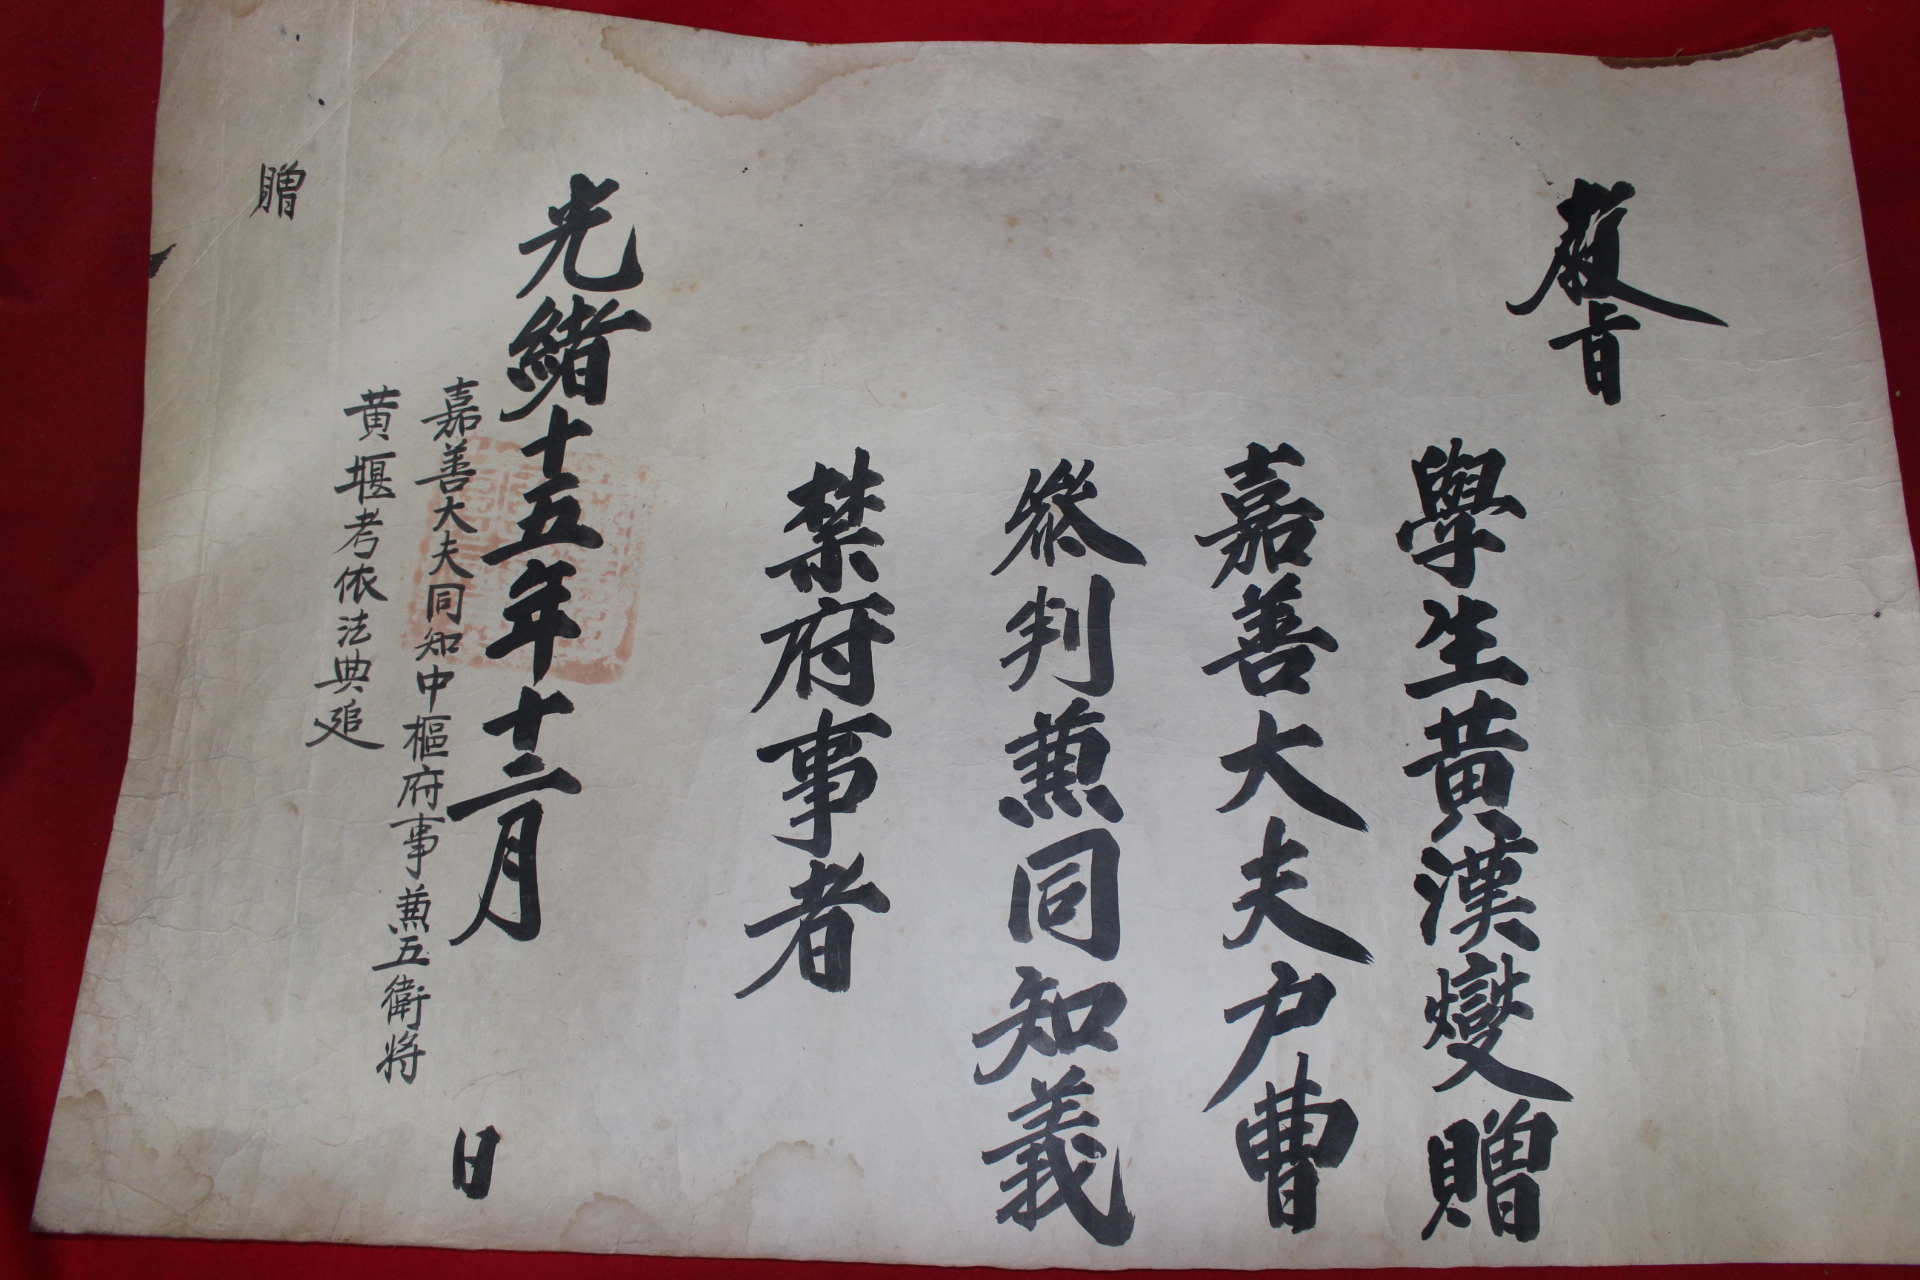 教旨
學生黃漢燮贈
嘉善大夫户曺
叅判兼同知義
禁府事者
光緒十五年十二月 日
嘉善大夫同知中樞府事兼五衛將
黃堰考依法典追
贈